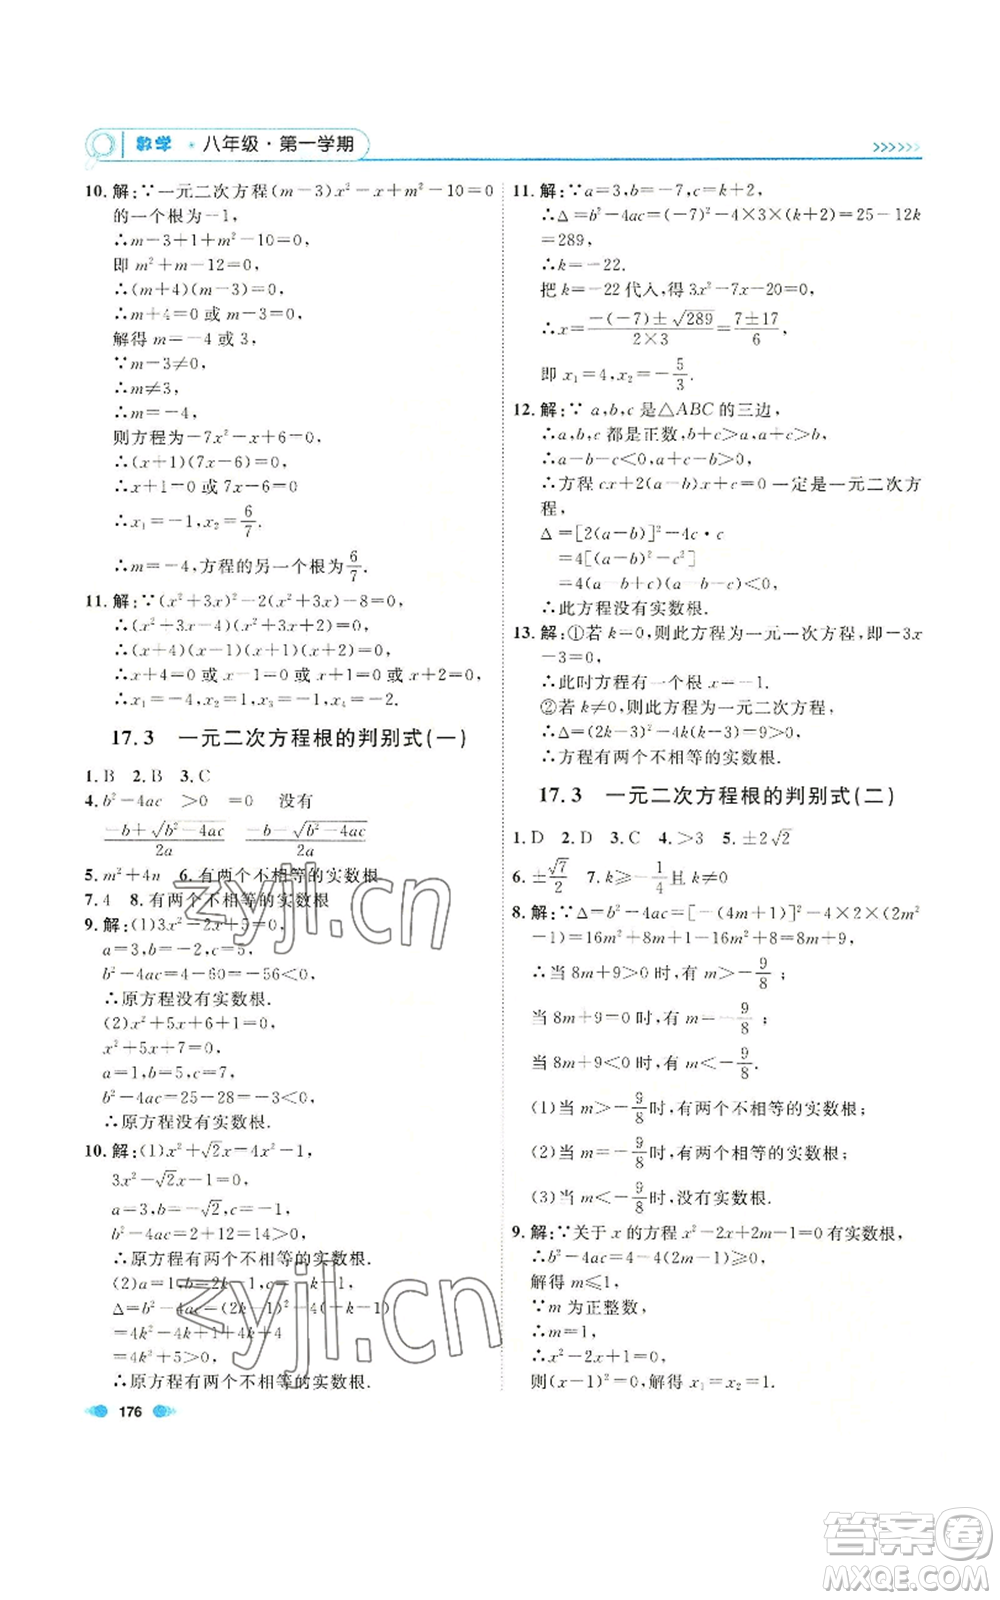 数学 · 八年级·第一学期
10. 解:∵一元二次方程(m-3)x²-x+m²-10=0
的一个根为-1,
∴m-3+1+m²-10=0,
即 m²+m-12=0,
∴(m+4)(m-3)=0,
∴m+4=0 或 m-3=0,
解得 m=-4 或 3,
∵m-3≠0,
∴m≠3,
∴m=-4,
则方程为-7x²-x+6=0,
∴(x+1)(7x-6)=0,
∴x+1=0 或 7x-6=0
∴x₁=-1,x₂=6/7.
∴m=-4,方程的另一个根为6/7.
11. 解:∵(x²+3x)²-2(x²+3x)-8=0,
∴(x²+3x-4)(x²+3x+2)=0,
∴(x+4)(x-1)(x+1)(x+2)=0,
∴x+4=0 或 x-1=0 或 x+1=0 或 x+2=0,
∴x₁=-4,x₂=1,x₃=-1,x₄=-2.
17.3 一元二次方程根的判别式(一)
1. B 2. B 3. C
4. b²-4ac >0 =0 没有
(-b+√(b²-4ac))/2a (-b-√(b²-4ac))/2a
5. m²+4n 6. 有两个不相等的实数根
7. 4 8. 有两个不相等的实数根
9. 解:(1)3x²-2x+5=0,
a=3,b=-2,c=5,
b²-4ac=4-60=-56<0,
∴原方程没有实数根.
(2)x²+5x+6+1=0,
x²+5x+7=0,
a=1,b=5,c=7,
b²-4ac=25-28=-3<0,
∴原方程没有实数根.
10. 解:(1)x²+√2x=4x²-1,
3x²-√2x-1=0,
a=3,b=-√2,c=-1,
b²-4ac=2+12=14>0,
∴原方程有两个不相等的实数根.
(2)a=1,b=2k-1,c=-k-1,
Δ=b²-4ac=(2k-1)²-4(-k-1)
=4k²-4k+1+4k+4
=4k²+5>0,
∴原方程有两个不相等的实数根.
176
11. 解:∵a=3,b=-7,c=k+2,
∴Δ=b²-4ac=(-7)²-4×3×(k+2)=25-12k
=289,
∴k=-22.
把 k=-22 代入,得 3x²-7x-20=0,
∴x=(-(-7)±√289)/(2×3)=(7±17)/6,
即 x₁=4,x₂=-5/3.
12. 解:∵ a,b,c 是△ABC 的三边,
∴a,b,c 都是正数,b+c>a,a+c>b,
∴a-b-c<0,a-b+c>0,
∴方程 cx²+2(a-b)x+c=0 一定是一元二次方
程,
Δ=[2(a-b)]²-4c·c
=4[(a-b)²-c²]
=4(a-b+c)(a-b-c)<0,
∴此方程没有实数根.
13. 解:①若 k=0,则此方程为一元一次方程,即-3x
-3=0,
∴此时方程有一个根 x=-1.
②若 k≠0,则此方程为一元二次方程,
∴Δ=(2k-3)²-4k(k-3)=9>0,
∴方程有两个不相等的实数根.
17.3 一元二次方程根的判别式(二)
1. D 2. D 3. C 4. >3 5. ±2√2
6. ±√7/2 7. k≥-1/4且 k≠0
8. 解:∵Δ=b²-4ac=[-(4m+1)]²-4×2×(2m²
-1)=16m²+8m+1-16m²+8=8m+9,
∴当 8m+9>0 时,有 m>-9/8;
当 8m+9=0 时,有 m=-9/8;
当 8m+9<0 时,有 m<-9/8.
(1)当 m>-9/8时,有两个不相等的实数根;
(2)当 m=-9/8时,有两个相等的实数根;
(3)当 m<-9/8时,没有实数根.
9. 解:∵关于 x 的方程 x²-2x+2m-1=0 有实数根,
∴b²-4ac=4-4(2m-1)≥0,
解得 m≤1,
∵m 为正整数,
∴m=1,
∴x²-2x+1=0,
则(x-1)²=0,解得 x₁=x₂=1.
zyjl.cn
zyjl.cn
答案卷
MXQE.COM